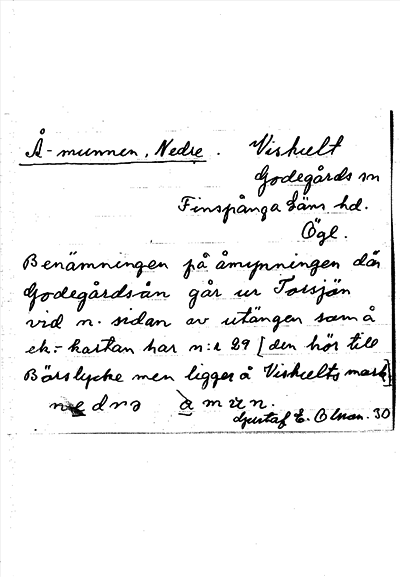 Å-munnen, Nedre. Viskult
Godegårds sn
Finspånga Läns hd.
Ögl.
Benämningen på åmynningen där
Godegårdsån går ur Torsjön
vid n. sidan av utängen som å
ek.-kartan har n:r 29 [den hör till
Bärslycke men ligger å Viskults mark]
nedrə åmun.
Gustaf E. Olson. 30